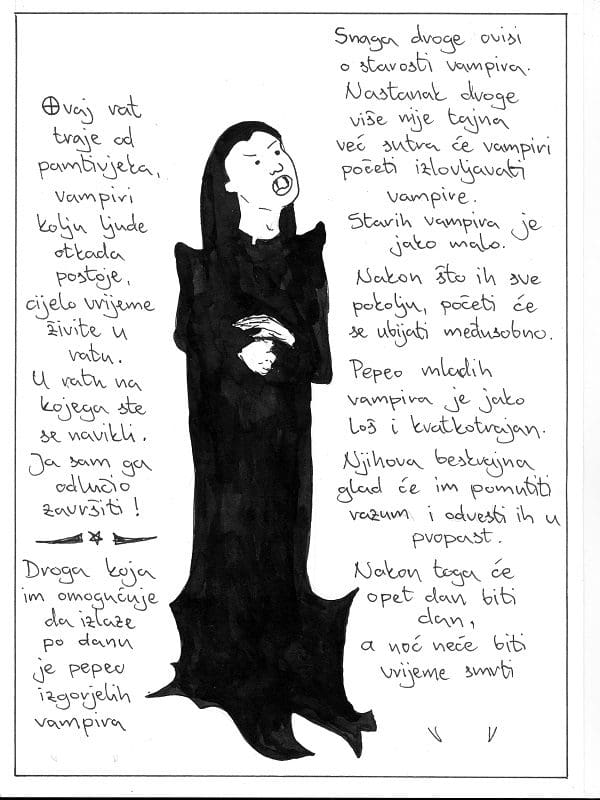 Ovaj rat
traje od
pamtivjeka,
vampiri
kolju ljude
otkada
postoje,
cijelo vrijeme
živite u
ratu.
U ratu na
kojega ste
se navikli.
Ja sam ga
odlučio
završiti!
Droga koja
im omogućuje
da izlaze
po danu
je pepeo
izgorjelih
vampira
Snaga droge ovisi
o starosti vampira.
Nastanak droge
više nije tajna
već sutra će vampiri
početi izlovljavati
vampire.
Starih vampira je
jako malo.
Nakon što ih sve
pokolju, početi će
se ubijati međusobno.
Pepeo mladih
vampira je jako
loš i kratkotrajan.
Njihova beskrajna
glad će im pomutiti
razum i odvesti ih u
propast.
Nakon toga će
opet dan biti
dan,
a noć neće biti
vrijeme smrti